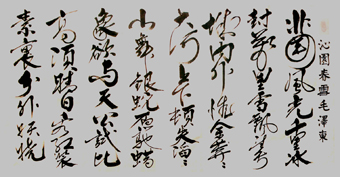 沁園春雪毛澤東
北國風光千里冰
封萬里雪飄望長
城內外惟余莽莽
大河上下頓失滔滔
山舞銀蛇原馳蠟
象欲與天公試比
高須晴日看紅裝
素裹分外妖嬈